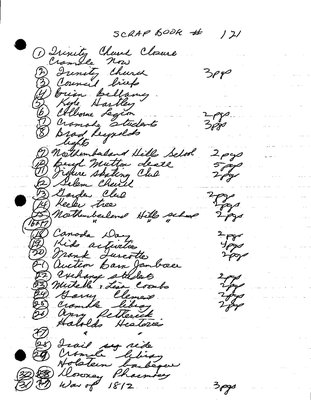 SCRAP BOOK # 121
1 Trinity Church Closure
Cramahe Now
2 Trinity Church 3pgs
3 Council briefs
4 Brian Bellamy
5 Kyle Hartley
6 Colborne Legion 2pgs
7 Cramahe Students 3pgs
8 Brad Reynolds
lights
9 Northumberland Hills School 2pgs
10 Beryl Mutton death 5pgs
11 Figure skating Club 2pgs
12 Salem Church
13 Garden Club 2pgs
14 Keeler tree 1pgs
15 Northumberland Hills school 2pgs
16+17 " " "
18 Canada Day 2pgs
19 Kids activities 4pgs
20 Frank Turcotte 2pgs
21 Auction Barn Jamboree
22 Exchange students 2pgs
23 Michelle + Lisa Coombs 2pgs
24 Garry Clemens 2pgs
25 Cramahe library 2pgs
26 Amy Petterick
Harolds Histories
27 "
28 Trail ride
29 Cramahe library
Holstein barbeque
30 Downey Pharmacy
31 War of 1812 3pgs